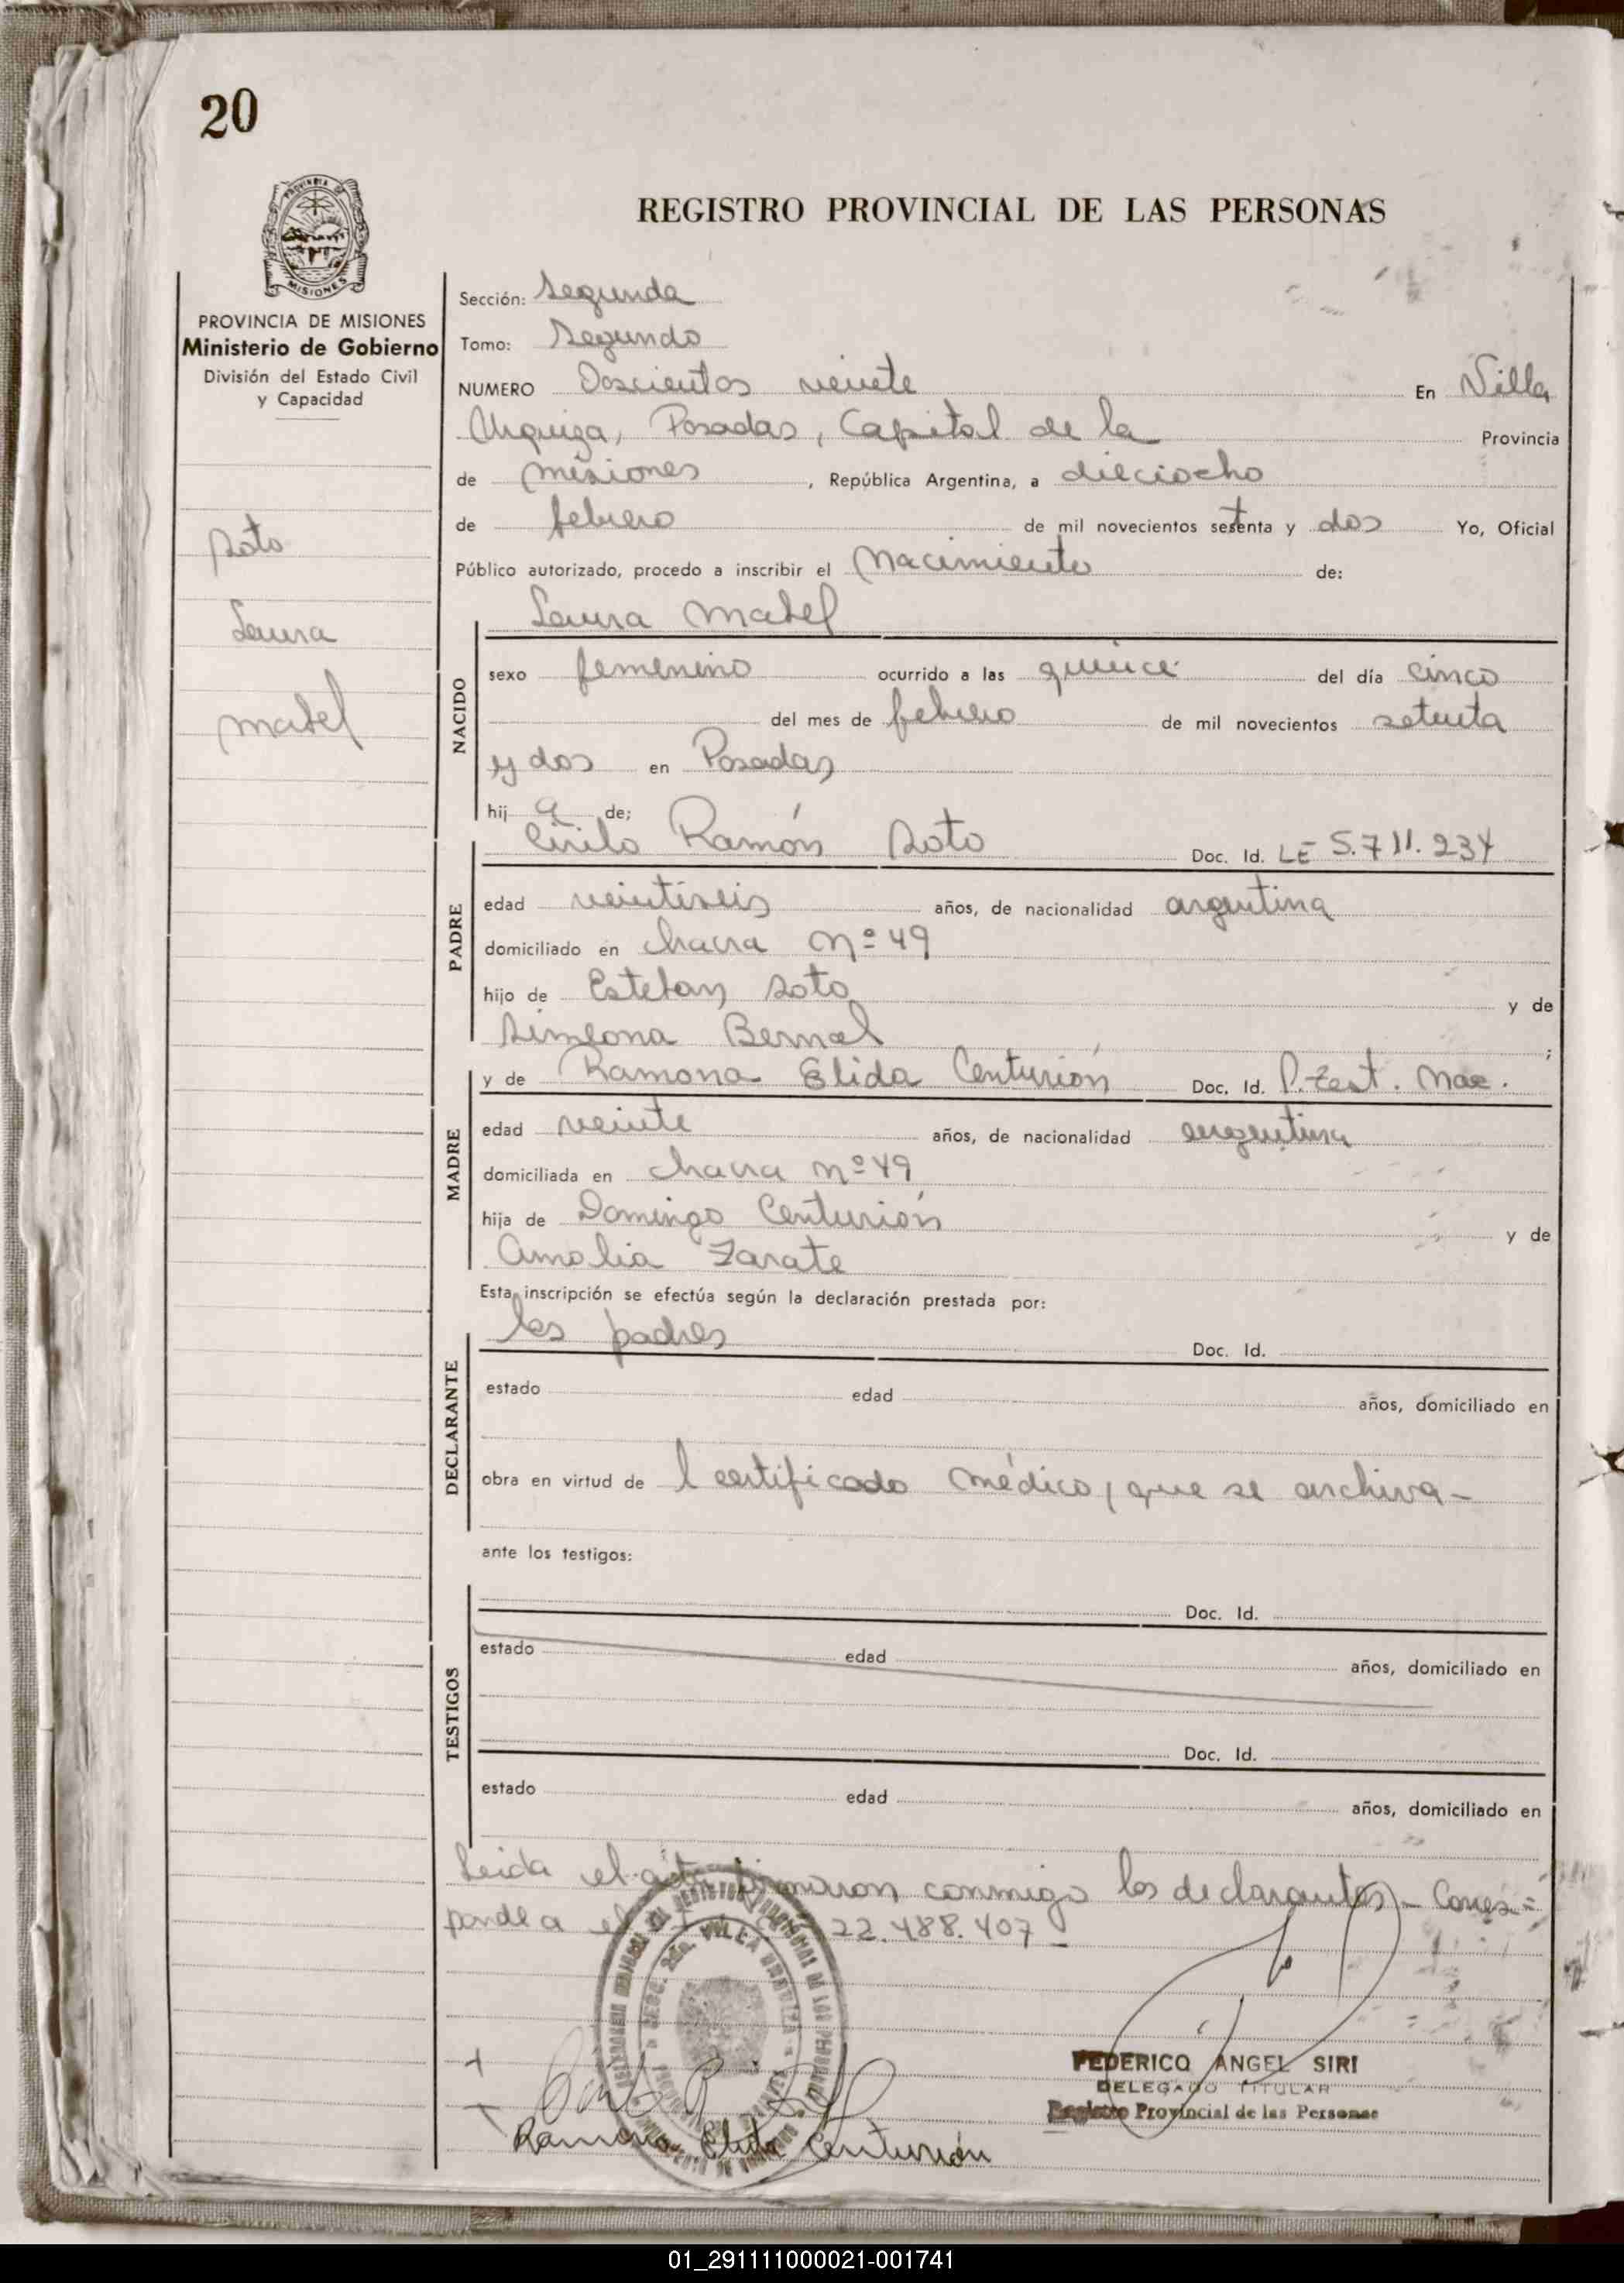 20
REGISTRO PROVINCIAL DE LAS PERSONAS
PROVINCIA DE MISIONES
Ministerio de Gobierno
División del Estado Civil
y Capacidad
Soto
Laura
Mabel
Sección: Segunda
Tomo: Segundo
NUMERO Doscientos veinte En Villa
Urquiza, Posadas, Capital de la Provincia
de Misiones, República Argentina, a dieciocho
de febrero de mil novecientos setenta y dos Yo, Oficial
Público autorizado, procedo a inscribir el Nacimiento de:
Laura Mabel
NACIDO
sexo femenino ocurrido a las quince del día cinco
del mes de febrero de mil novecientos setenta
y dos en Posadas
hij a de;
Cirilo Ramón Soto Doc. Id. LE 5.711.234
PADRE
edad veintiseis años, de nacionalidad argentina
domiciliado en chacra Nº 49
hijo de Esteban Soto y de
Simeona Bernal ;
y de Ramona Elida Centurión Doc. Id. P. Test. Nac.
MADRE
edad veinte años, de nacionalidad argentina
domiciliada en chacra nº 49
hija de Domingo Centurión y de
Amalia Zarate
Esta inscripción se efectúa según la declaración prestada por:
los padres Doc. Id.
DECLARANTE
estado edad años, domiciliado en
obra en virtud de l certificado médico, que se archiva-
ante los testigos:
Doc. Id.
TESTIGOS
estado edad años, domiciliado en
Doc. Id.
estado edad años, domiciliado en
Leida el acta firmaron conmigo los declarantes - Corres=
ponde a el 22.488.407 -
SECC. 2da. VILLA URQUIZA
FEDERICO ANGEL SIRI
DELEGADO TITULAR
Registro Provincial de las Personas
Ramona Elida Centurión
01_291111000021-001741